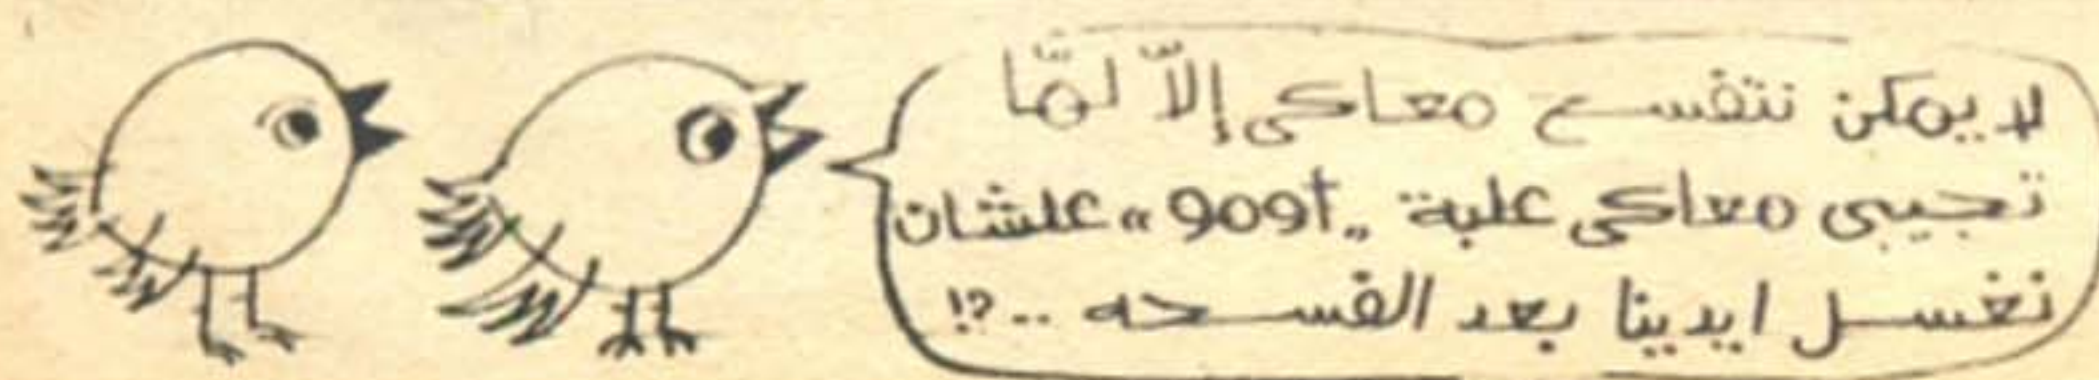 لا يمكن نتفسح معاكى إلاّ لمّا
تجيبى معاكى علبة „ 909t “ علشان
نغسل ايدينا بعد الفسحه ..؟!